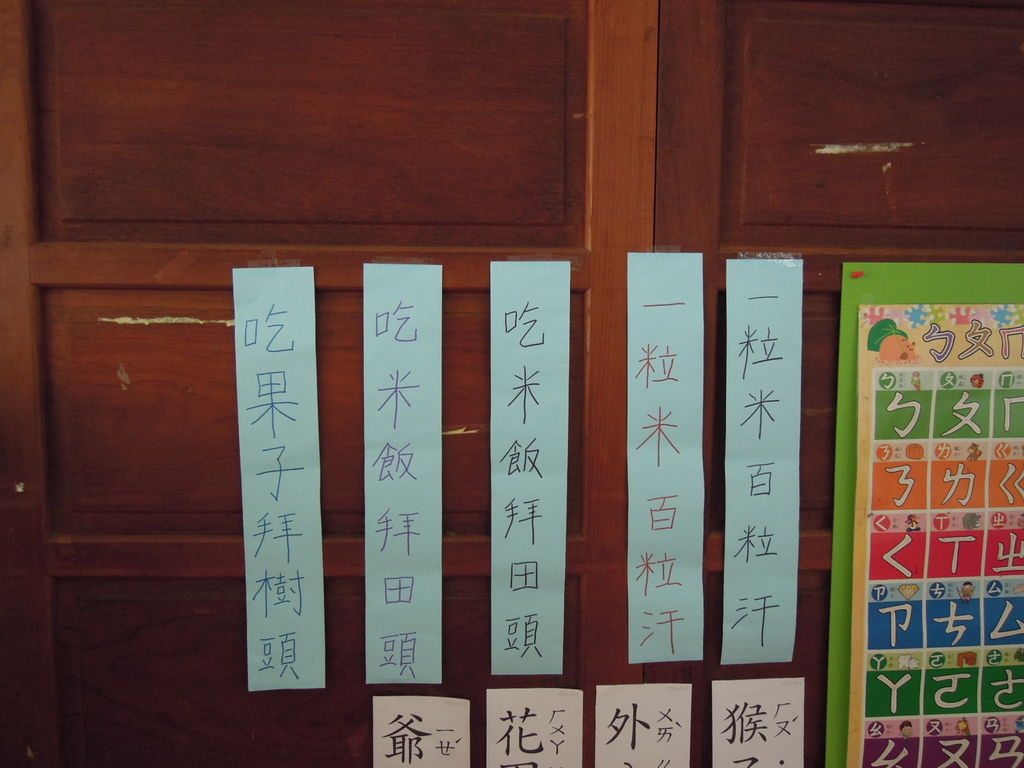 一粒米百粒汗
一粒米百粒汗
吃米飯拜田頭
吃米飯拜田頭
吃果子拜樹頭
猴 ㄏㄡˊ
外 ㄨㄞˋ
花 ㄏㄨㄚ
爺 ㄧㄝˊ
ㄅㄆㄇ
ㄅ ㄆ ㄇ
ㄋ ㄌ ㄍ
ㄑ ㄒ ㄓ
ㄗ ㄘ ㄙ
ㄚ ㄛ ㄜ
ㄠ ㄡ ㄢ